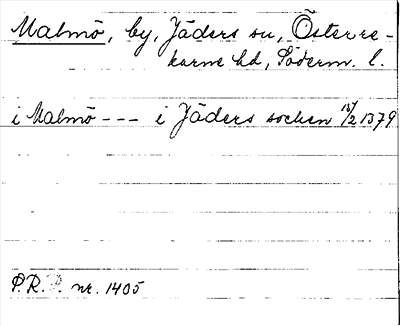 Malmö, by, Jäders sn, Österre-
karne hd, Söderm. l.
i Malmö --- i Jäders socken 15/2 1379
P.R.P. nr. 1405